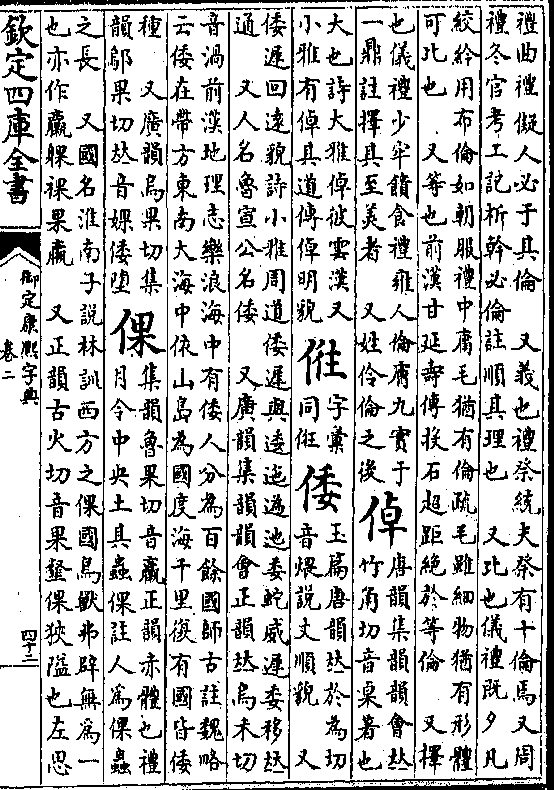 禮曲禮儗人必于其倫　又義也禮祭統夫祭有十倫焉又周
禮冬官考工記析幹必倫註順其理也　又比也儀禮既夕凡
絞紟用布倫如朝服禮中庸毛猶有倫疏毛雖細物猶有形體
可比也　又等也前漢甘延壽傳投石超距絕於等倫　又擇
也儀禮少牢饋食禮雍人倫膚九實于
一鼎註擇其至美者　又姓伶倫之後
倬
唐韻集韻韻會𠀤
竹角切音桌著也
大也詩大雅倬彼雲漢又
小雅有倬其道傳倬明貌
字彙
同俇
倭
玉篇唐韻𠀤於為切
音煨說文順貌　又
倭遲回遠貌詩小雅周道倭遲與逶迤逶池委蛇威遲委移𠀤
通　又人名魯宣公名倭　又廣韻集韻韻會正韻𠀤烏禾切
音渦前漢地理志樂浪海中有倭人分為百餘國師古註魏略
云倭在帶方東南大海中依山島為國度海千里復有國皆倭
種　又廣韻烏果切集
韻鄔果切𠀤音婐倭墮
倮
集韻魯果切音臝正韻赤體也禮
月令中央土其蟲倮註人為倮蟲
之長　又國名淮南子說林訓西方之倮國鳥獸弗辟無為一
也亦作臝躶裸果蠃　又正韻古火切音果蜑倮狹隘也左思
欽定四庫全書
御定康熙字典
卷二
四十二